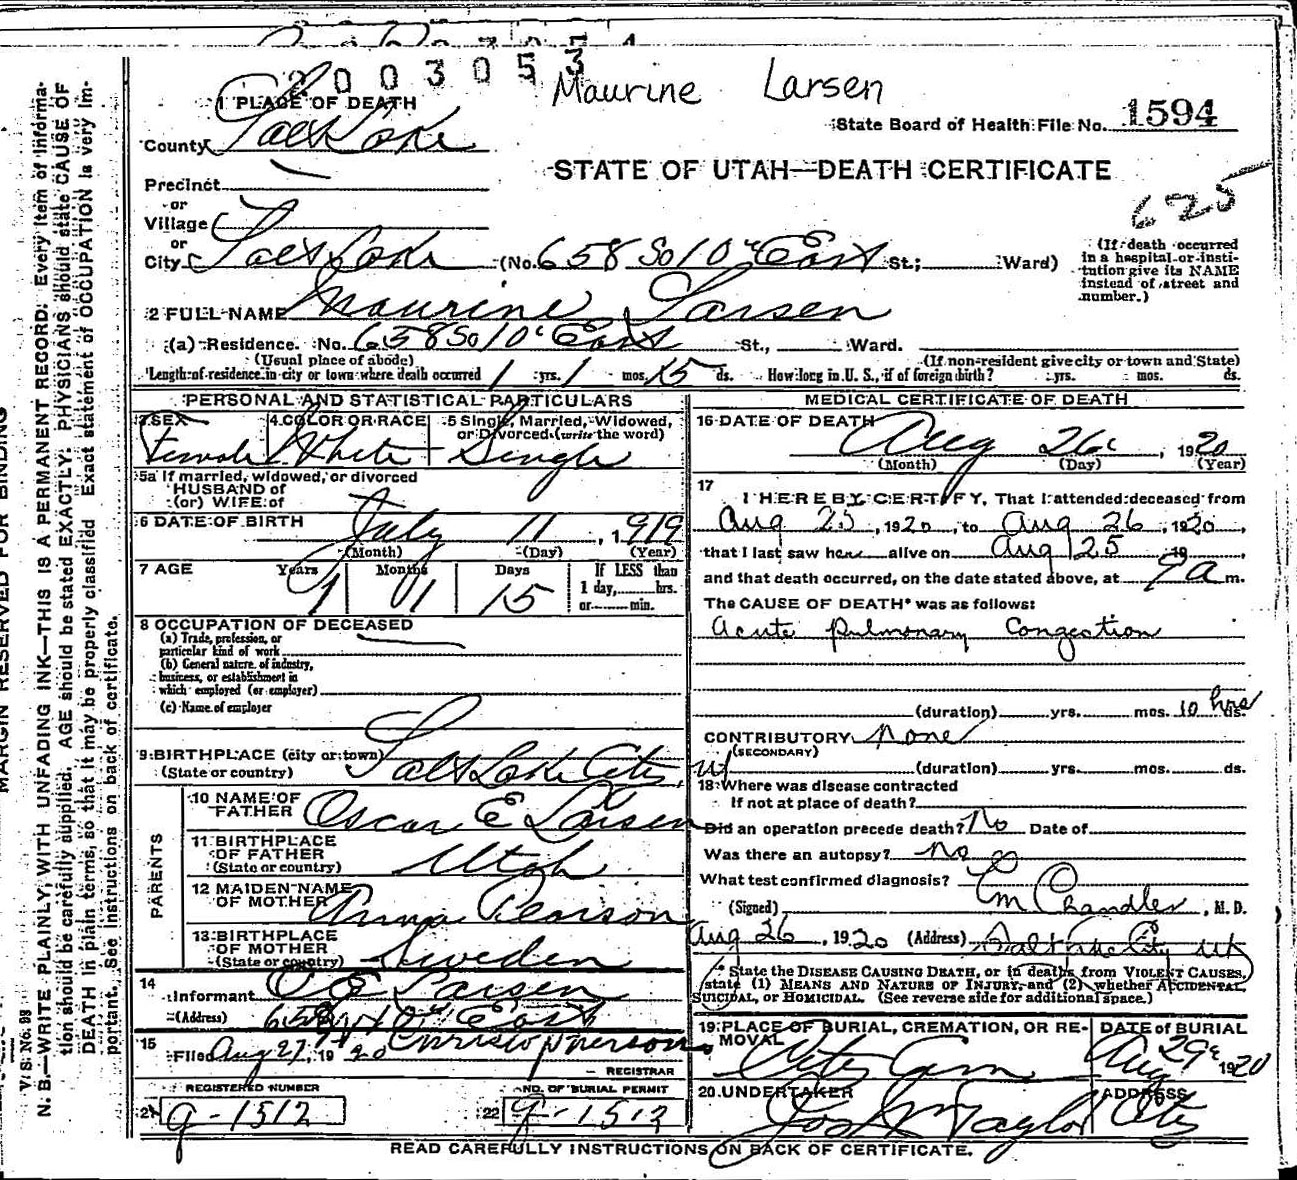 2003053
Maurine Larsen
1 PLACE OF DEATH
State Board of Health File No. 1594
County Salt Lake
STATE OF UTAH—DEATH CERTIFICATE
Precinct
625
or
Village
or
City Salt Lake (No. 658 So 10th East St.; Ward)
(If death occurred in a hospital or insti-
tution give its NAME
instead of street and
number.)
2 FULL NAME Maurine Larsen
(a) Residence. No. 658 So 10th East St., Ward.
(Usual place of abode) (If non-resident give city or town and State)
Length of residence in city or town where death occurred 1 yrs. 1 mos. 15 ds. How long in U. S., if of foreign birth? yrs. mos. ds.
PERSONAL AND STATISTICAL PARTICULARS
3 SEX Female
4 COLOR OR RACE White
5 Single, Married, Widowed,
or Divorced (write the word)
Single
5a If married, widowed, or divorced
HUSBAND of
(or) WIFE of
6 DATE OF BIRTH July 11, 1919
(Month) (Day) (Year)
7 AGE Years Months Days If LESS than
1 day, hrs.
or min.
1 1 15
8 OCCUPATION OF DECEASED
(a) Trade, profession, or
particular kind of work
(b) General nature of industry,
business, or establishment in
which employed (or employer)
(c) Name of employer
9 BIRTHPLACE (city or town)
(State or country) Salt Lake City, Ut
PARENTS
10 NAME OF
FATHER Oscar E Larsen
11 BIRTHPLACE
OF FATHER
(State or country) Utah
12 MAIDEN NAME
OF MOTHER Anna Pearson
13 BIRTHPLACE
OF MOTHER
(State or country) Sweden
14
Informant O E Larsen
(Address) 658 10th East
15
Filed Aug 27, 1920 Christopherson
REGISTRAR
REGISTERED NUMBER
21 9-1512
NO. OF BURIAL PERMIT
22 9-1512
MEDICAL CERTIFICATE OF DEATH
16 DATE OF DEATH
Aug 26, 1920
(Month) (Day) (Year)
17
I HEREBY CERTIFY, That I attended deceased from
Aug 25, 1920, to Aug 26, 1920,
that I last saw her alive on Aug 25, 19
and that death occurred, on the date stated above, at 9 a m.
The CAUSE OF DEATH* was as follows:
Acute Pulmonary Congestion
(duration) yrs. mos. 10 hrs ds.
CONTRIBUTORY none
(SECONDARY)
(duration) yrs. mos. ds.
18 Where was disease contracted
If not at place of death?
Did an operation precede death? No Date of
Was there an autopsy? No
What test confirmed diagnosis?
(Signed) Chandler, M. D.
Aug 26, 1920 (Address) Salt Lake City Ut
*State the DISEASE CAUSING DEATH, or in deaths from VIOLENT CAUSES,
state (1) MEANS AND NATURE OF INJURY, and (2) whether ACCIDENTAL,
SUICIDAL, OR HOMICIDAL. (See reverse side for additional space.)
19 PLACE OF BURIAL, CREMATION, OR RE-
MOVAL City Cem
DATE of BURIAL
Aug 29, 1920
20 UNDERTAKER
Jos Wm Taylor
ADDRESS
City
READ CAREFULLY INSTRUCTIONS ON BACK OF CERTIFICATE.
MARGIN RESERVED FOR BINDING
N. B.—WRITE PLAINLY, WITH UNFADING INK—THIS IS A PERMANENT RECORD. Every item of informa-
tion should be carefully supplied. AGE should be stated EXACTLY. PHYSICIANS should state CAUSE OF
DEATH in plain terms, so that it may be properly classified. Exact statement of OCCUPATION is very im-
portant. See instructions on back of certificate.